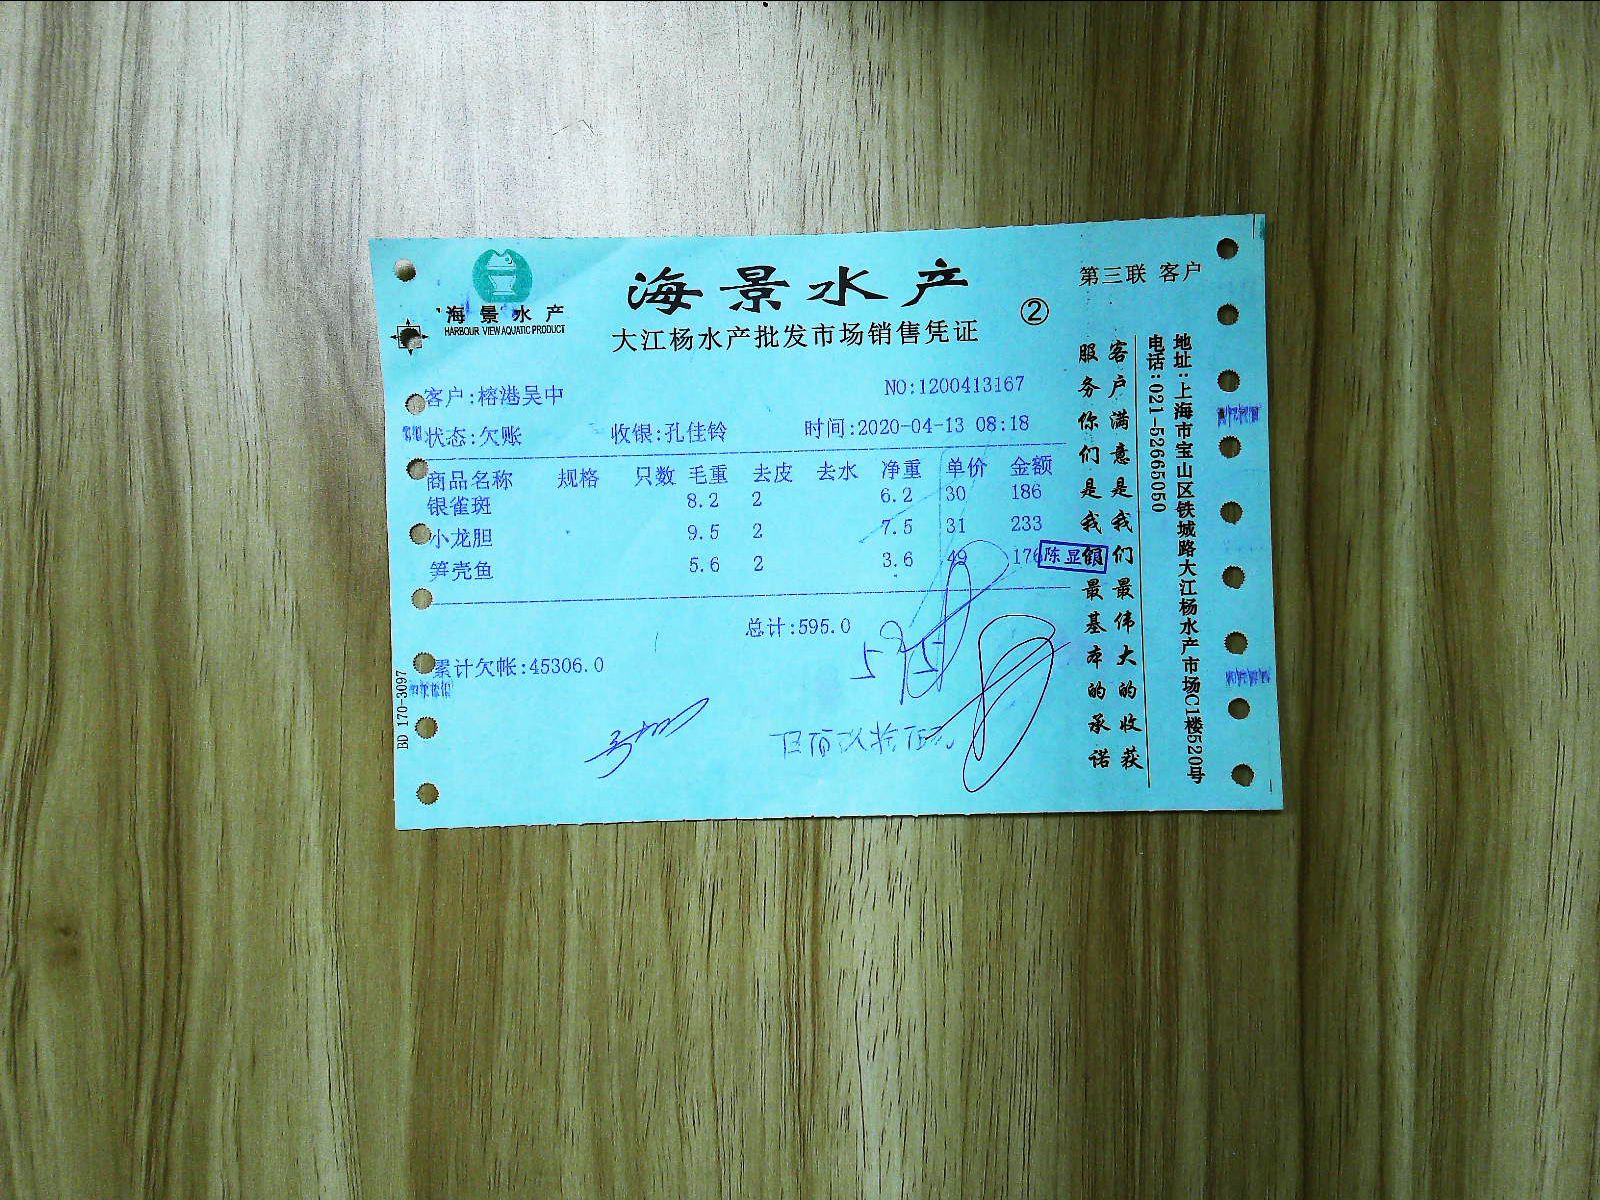 海景水产
HARBOUR VIEW AQUATIC PRODUCT
海景水产
大江杨水产批发市场销售凭证
②
第三联 客户
客户:榕港吴中
NO:1200413167
状态:欠账 收银:孔佳铃 时间:2020-04-13 08:18
商品名称 规格 只数 毛重 去皮 去水 净重 单价 金额
银雀斑 8.2 2 6.2 30 186
小龙胆 9.5 2 7.5 31 233
笋壳鱼 5.6 2 3.6 49 176
陈显娟
总计:595.0
595
累计欠帐:45306.0
伍佰玖拾伍元
BD 170-3097
客户满意是我们最伟大的收获
服务你们是我们最基本的承诺
地址:上海市宝山区铁城路大江杨水产市场C1楼520号
电话:021-52665050